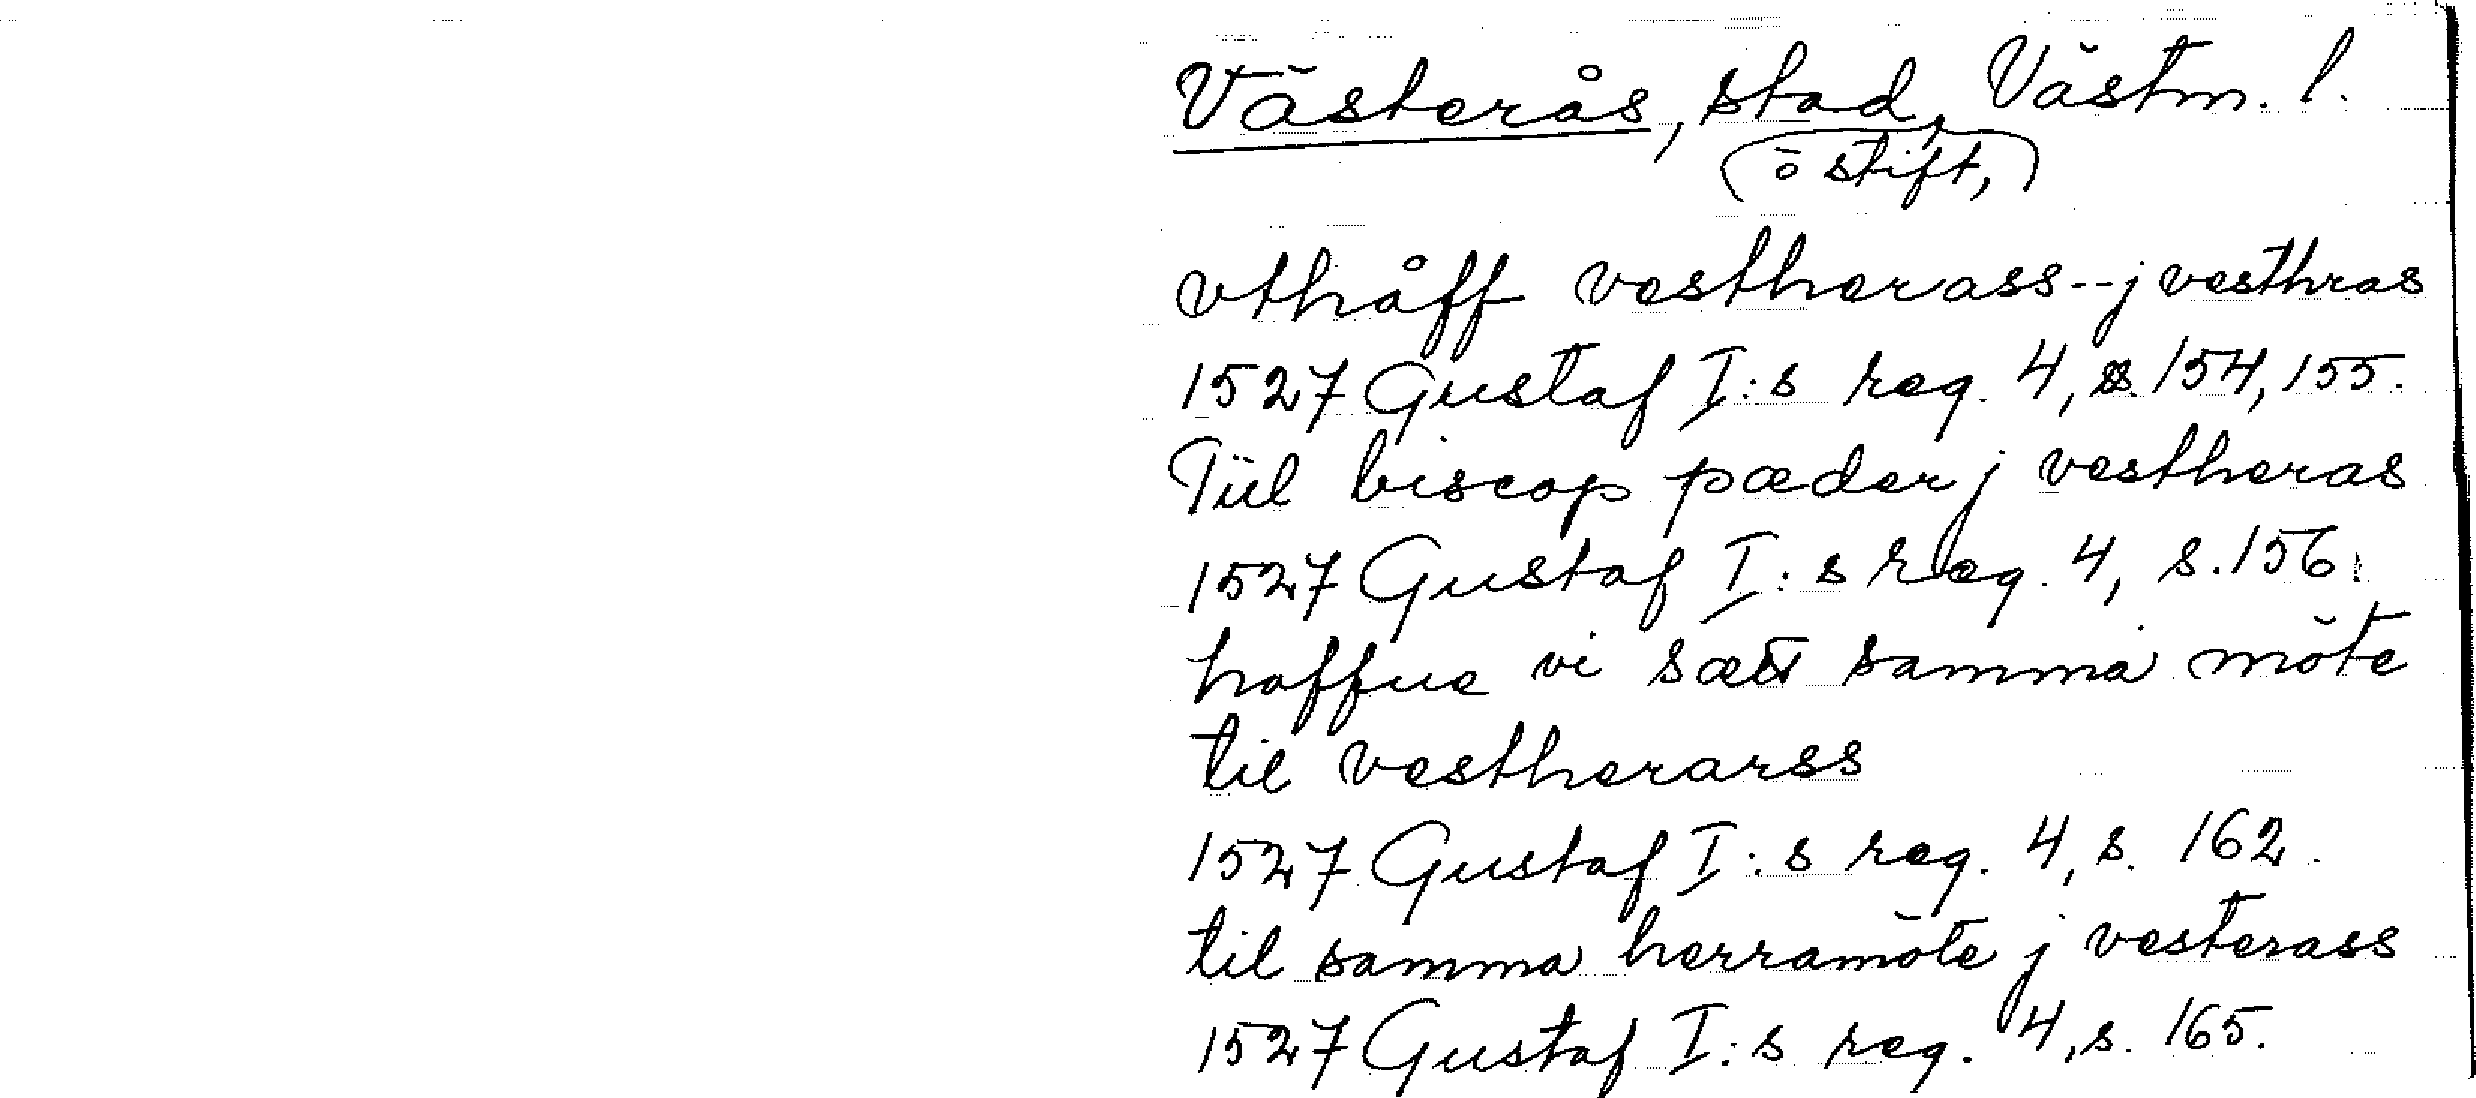 Västerås, stad, Västm. l.
(o stift,)
vthåff vestherass--j vesthras
1527 Gustaf I:s reg. 4, s. 154, 155.
Tiil biscop pæder j vestheras
1527 Gustaf I:s reg. 4, s. 156.
haffue vi sætt samma möte
til vestherarss
1527 Gustaf I:s reg. 4, s. 162.
til samma herramöte j vesterass
1527 Gustaf I:s reg. 4, s. 165.